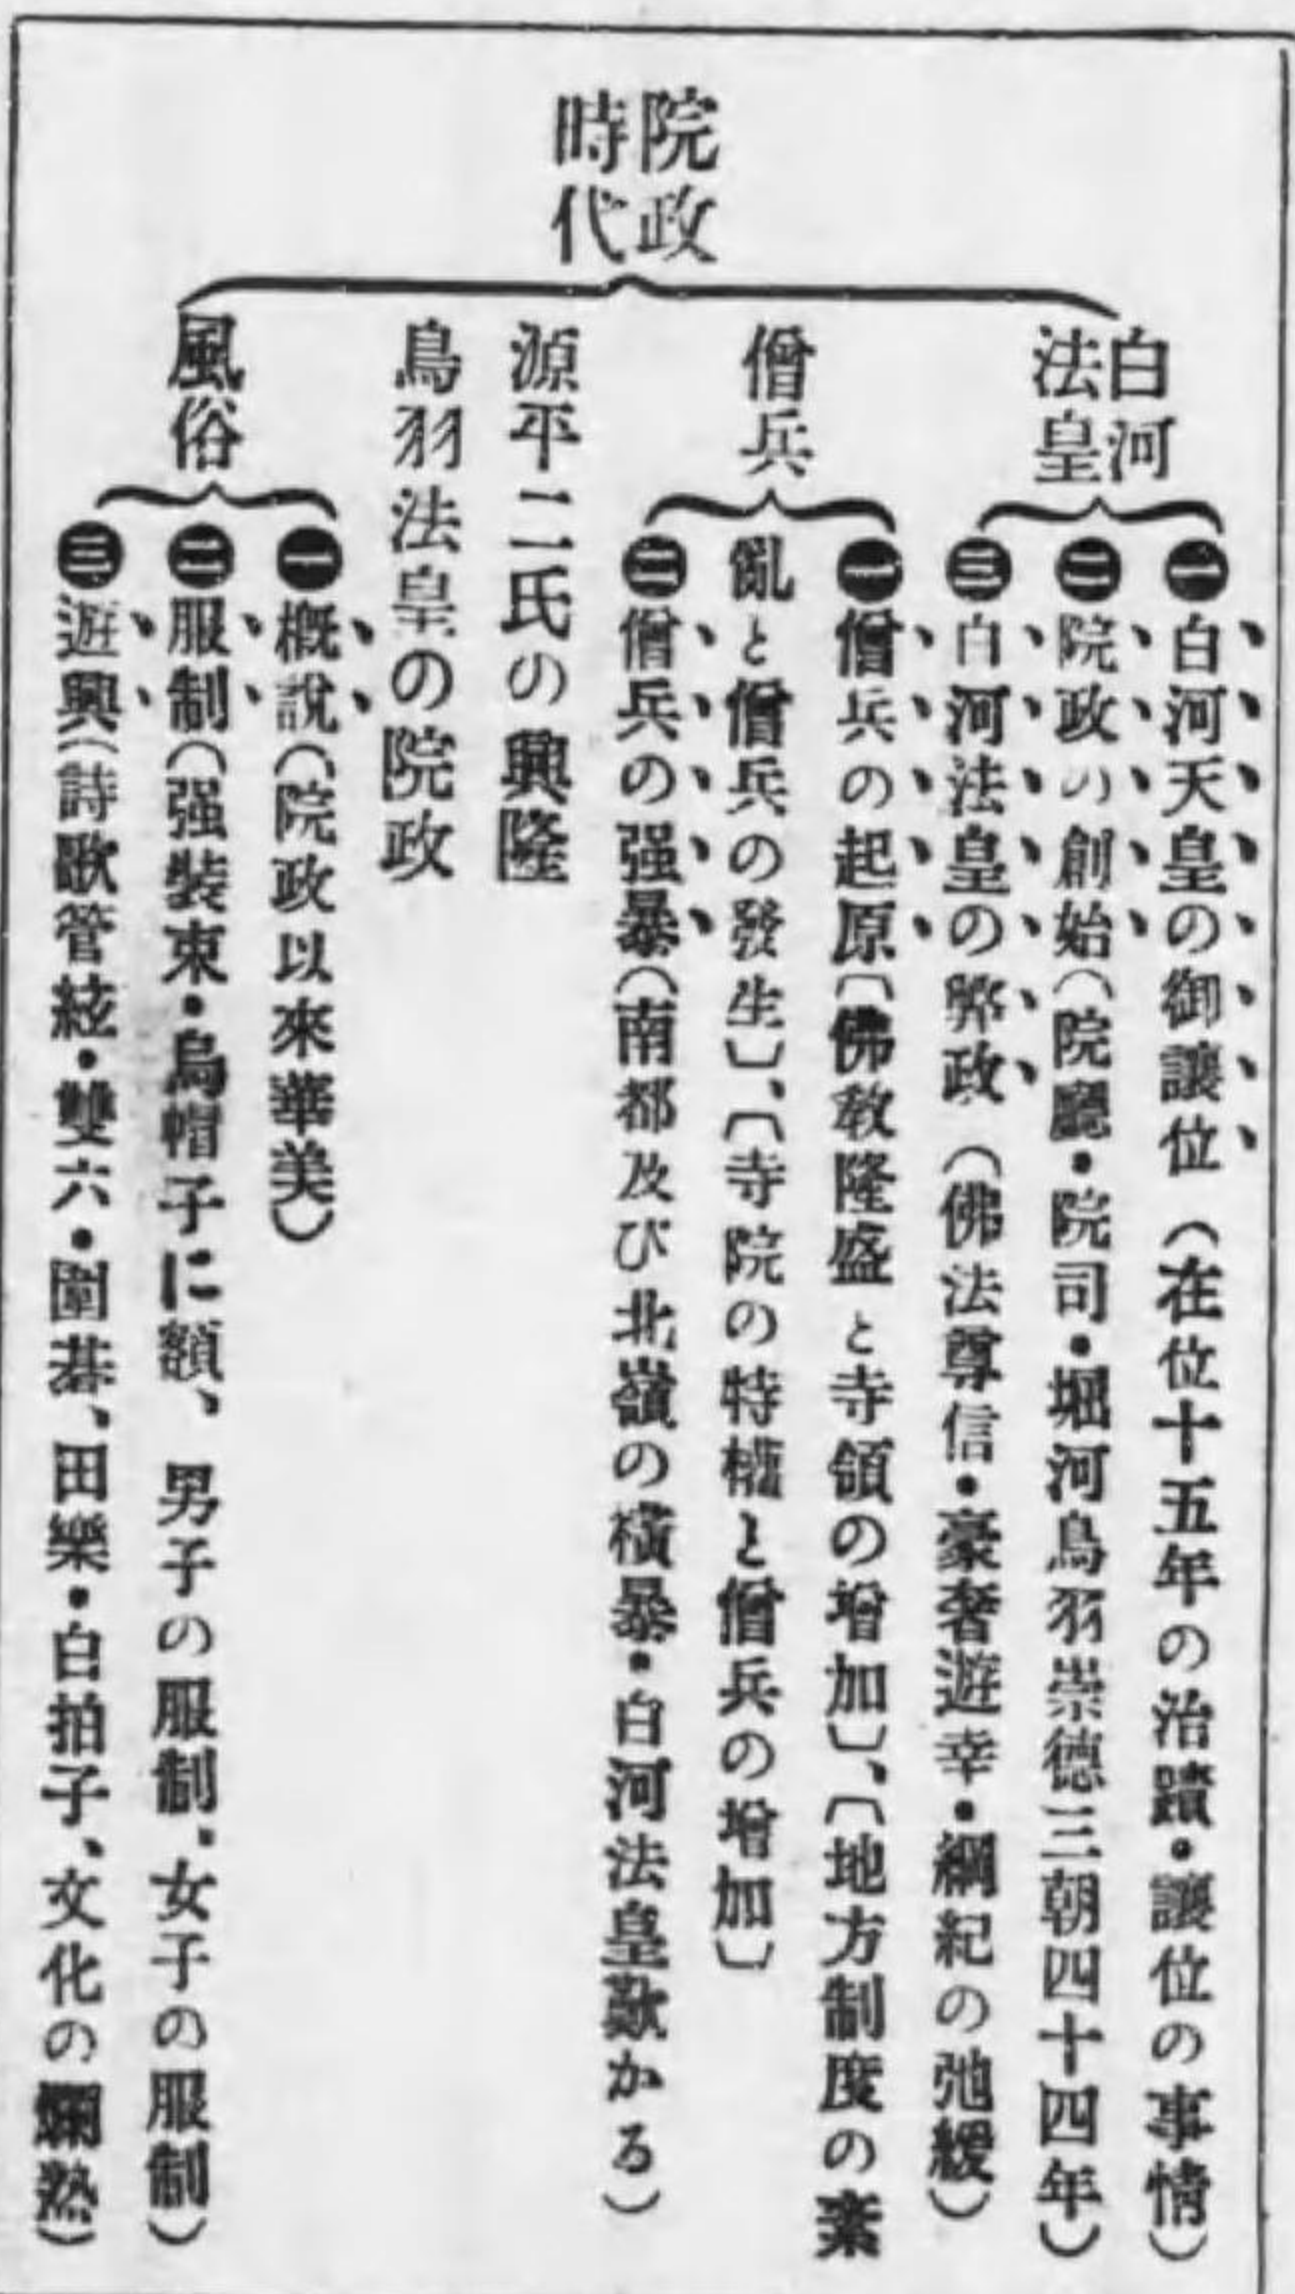 院政
時代
白河
法皇
㊀白河天皇の御讓位（在位十五年の治蹟・讓位の事情）
㊁院政の創始（院廳・院司・堀河鳥羽崇德三朝四十四年）
㊂白河法皇の弊政（佛法尊信・豪奢遊幸・綱紀の弛緩）
僧兵
㊀僧兵の起原〔佛敎隆盛と寺領の增加〕、〔地方制度の紊
亂と僧兵の發生〕、〔寺院の特權と僧兵の增加〕
㊁僧兵の强暴（南都及び北嶺の橫暴・白河法皇歎かる）
源平二氏の興隆
鳥羽法皇の院政
風俗
㊀槪說（院政以來華美）
㊁服制（强裝束・烏帽子に額、男子の服制、女子の服制）
㊂遊興（詩歌管絃・雙六・圍碁、田樂・白拍子、文化の爛熟）